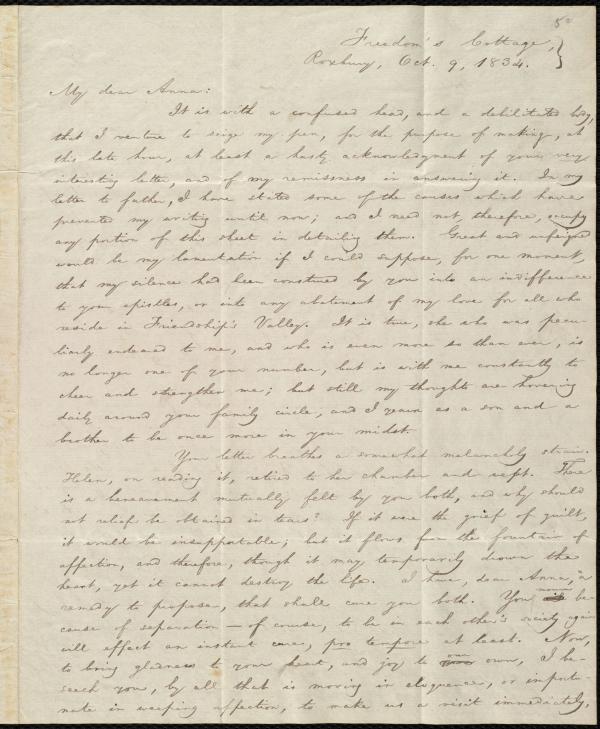 Freedom's Cottage,
Roxbury, Oct. 9, 1834.
My dear Anna:
It is with a confused head, and a debilitated body,
that I venture to seize my pen, for the purpose of making, at
this late hour, at least a hasty acknowledgment of your very
interesting letter, and of my remissness in answering it. In my
letter to father, I have stated some of the causes which have
prevented my writing until now; and I need not, therefore, occupy
any portion of this sheet in detailing them. Great and unfeigned
would be my lamentation if I could suppose, for one moment,
that my silence had been construed by you into an indifference
to your epistles, or into any abatement of my love for all who
reside in Friendship's Valley. It is true, she who was pecu-
liarly endeared to me, and who is even more so than ever, is
no longer one of your number, but is with me constantly to
cheer and strengthen me; but still my thoughts are hovering
daily around your family circle, and I yearn as a son and a
brother to be once more in your midst.
Your letter breathes a somewhat melancholy strain.
Helen, on reading it, retired to her chamber and wept. There
is a bereavement mutually felt by you both, and why should
not relief be obtained in tears? If it were the grief of guilt,
it would be insupportable; but it flows from the fountain of
affection, and therefore, though it may temporarily drown the
heart, yet it cannot destroy the life. I have, dear Anna, a
remedy to propose, that shall cure you both. You mourn be-
cause of separation — of course, to be in each other's society again
will effect an instant cure, pro tempore at least. Now,
to bring gladness to your heart, and joy to our own, I be-
seech you, by all that is moving in eloquence, or importu-
nate in weeping affection, to make us a visit immediately,